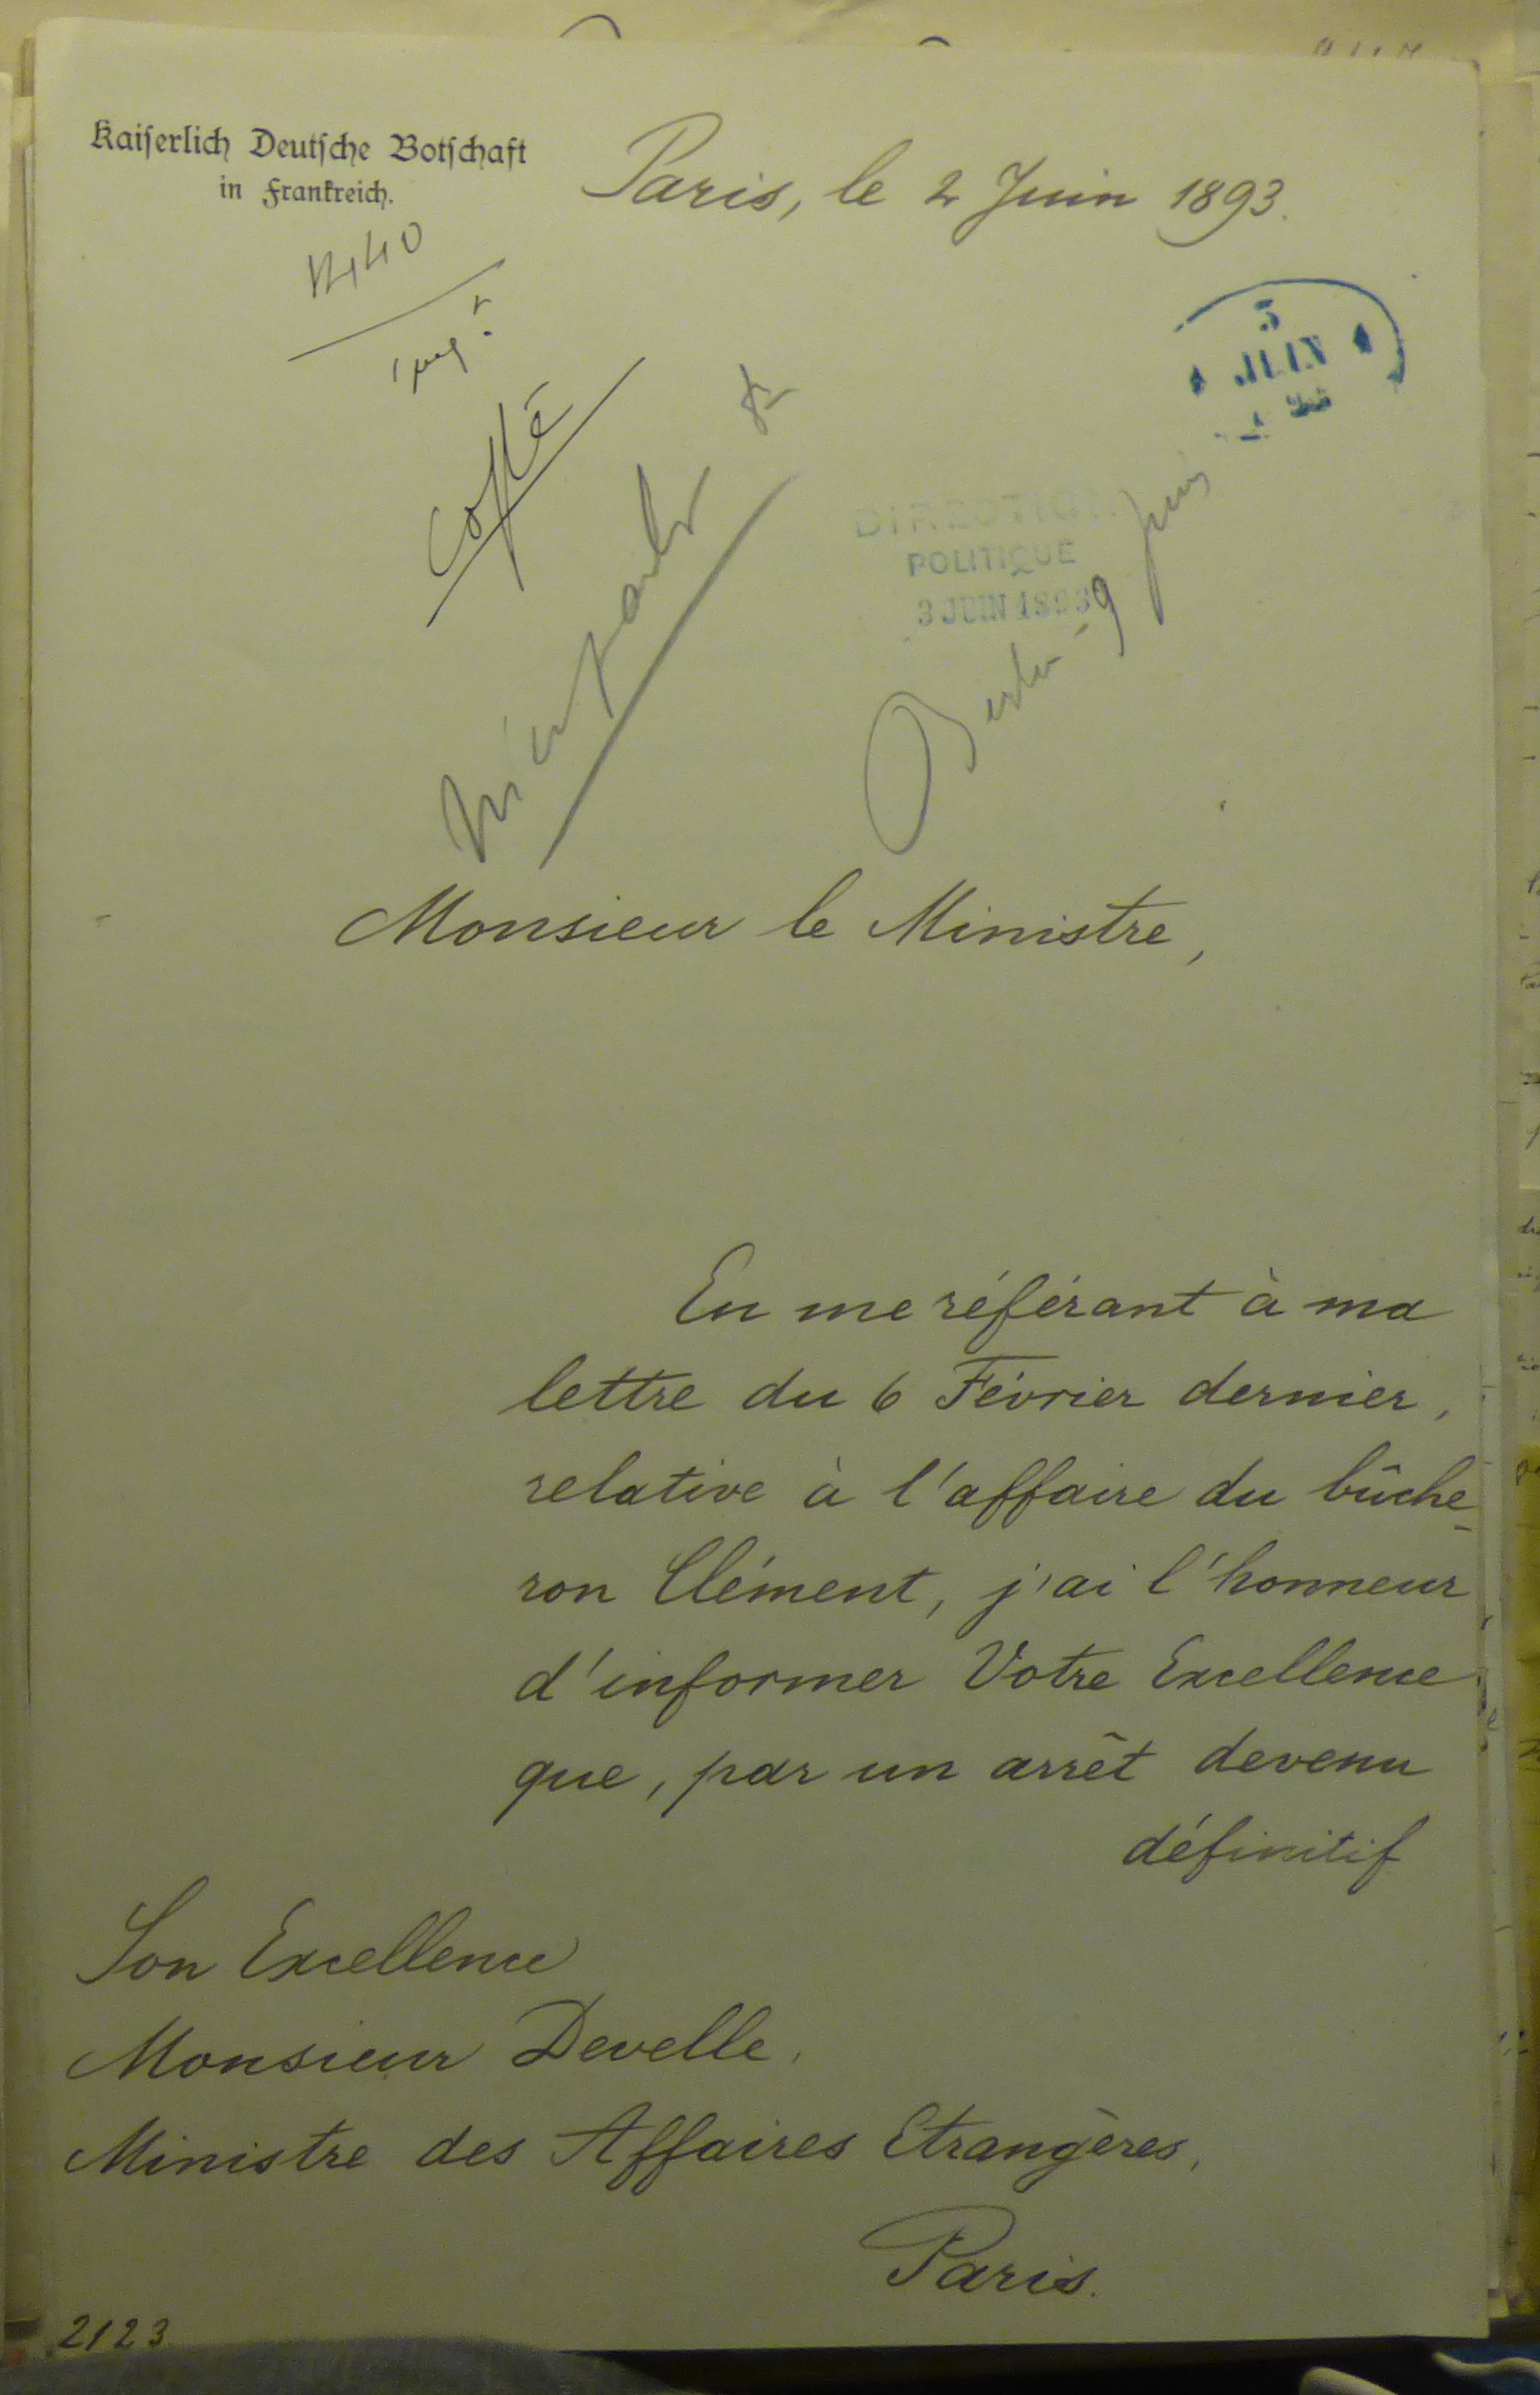 Kaiserlich Deutsche Botschaft
in Frankreich.
Paris, le 2 Juin 1893.
3
JUIN
DIRECTION
POLITIQUE
3 JUIN 1893
Berlin 9 juin
Monsieur le Ministre,
En me référant à ma
lettre du 6 Février dernier,
relative à l'affaire du bûche-
ron Clément, j'ai l'honneur
d'informer Votre Excellence
que, par un arrêt devenu
définitif
Son Excellence
Monsieur Develle,
Ministre des Affaires Etrangères,
Paris.
2123